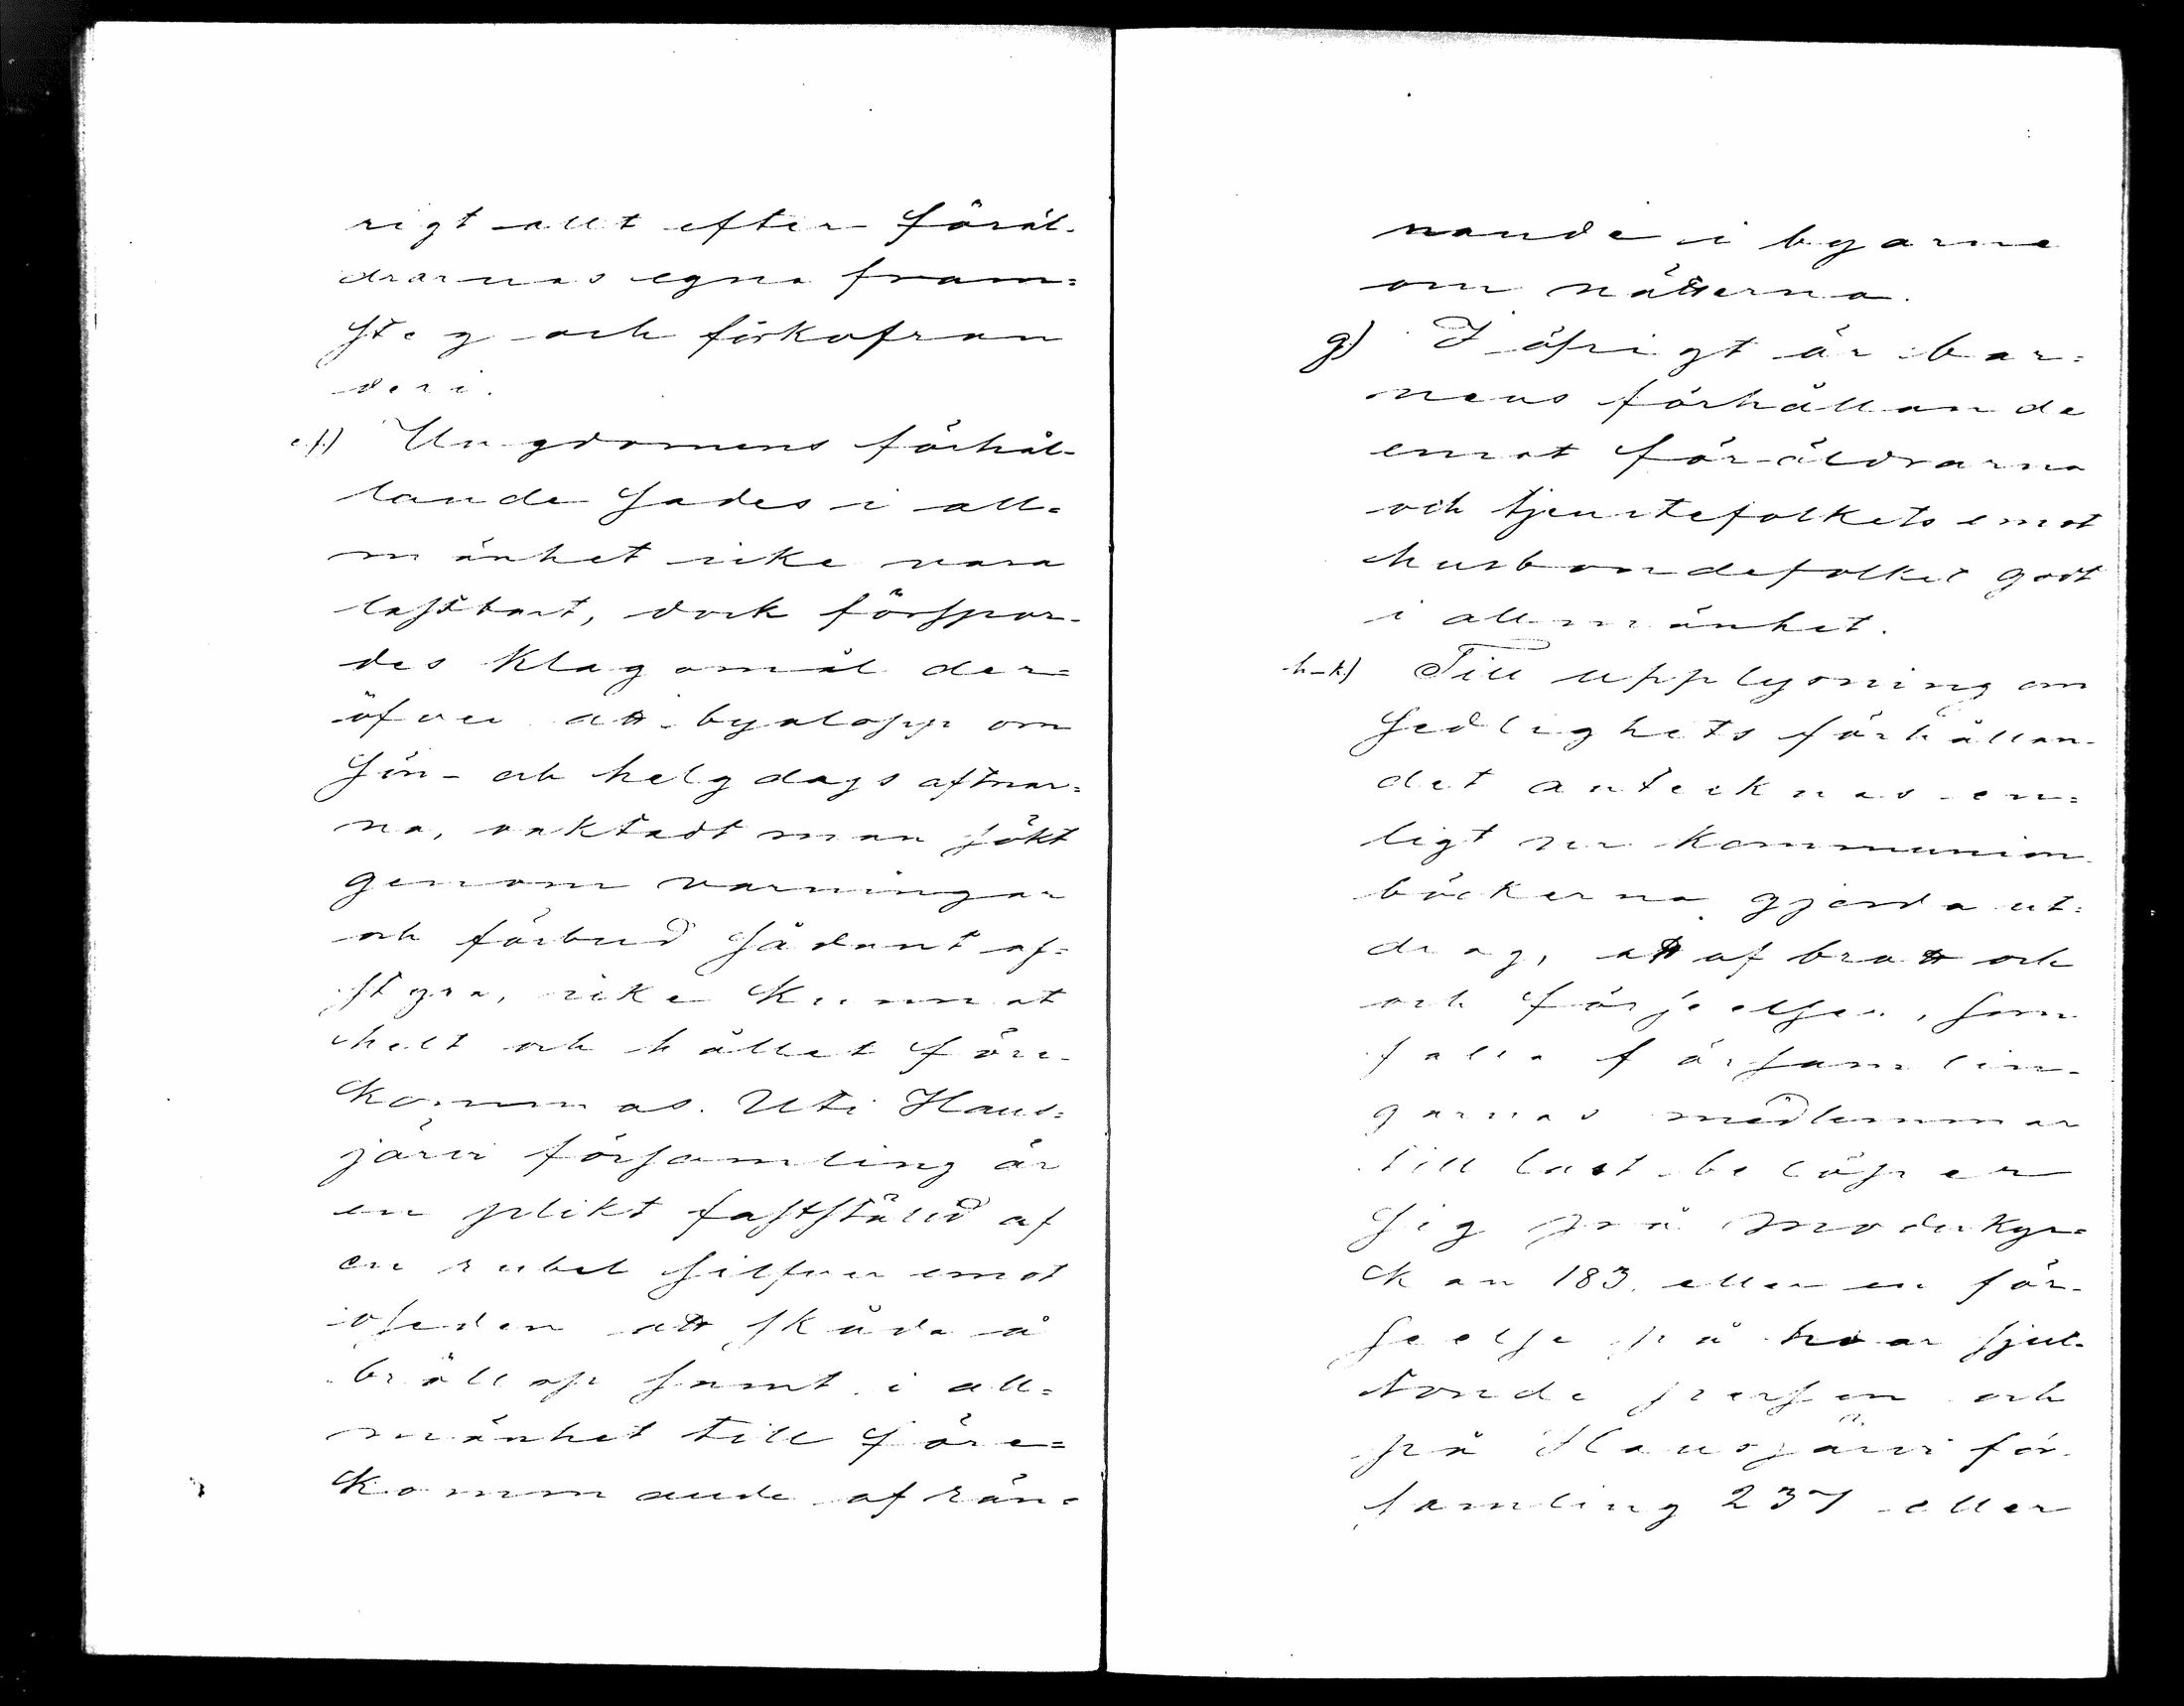 rigt allt efter föräl-
drarnas egna fram=
steg och förkofran
deri.
e.f.) Ungdomens förhål-
lande sades i all=
mänhet icke vara
lastbart, dock förspor-
des klagomål der=
öfver att byalopp om
sön- och helgdags aftnar=
na, oaktadt man sökt
genom varningar
och förbud sådant af=
styra, icke kunnat
helt och hållet före-
kommas. Uti Haus=
järvi församling är
en plikt fastställd af
en rubel silfver emot
oseden att skåda å
bröllop samt i all=
mänhet till före=
kommande af rän=
nande i byarne
om nätterna.
g) I öfrigt är bar=
nens förhållande
emot föräldrarna
och tjenstefolkets emot
husbondefolket godt
i allmänhet.
h-k) Till upplysning om
sedlighets förhållan-
det antecknas en=
ligt ur kommunion
böckerna gjorda ut=
drag, att af brott och
och förseelser, som
falla församlin-
garnas medlemmar
till last belöper
sig på moderkyr=
kan 183. eller en för-
seelse på hvar sjut-
tonde person och
på Hausjärvi för-
samling 237 eller